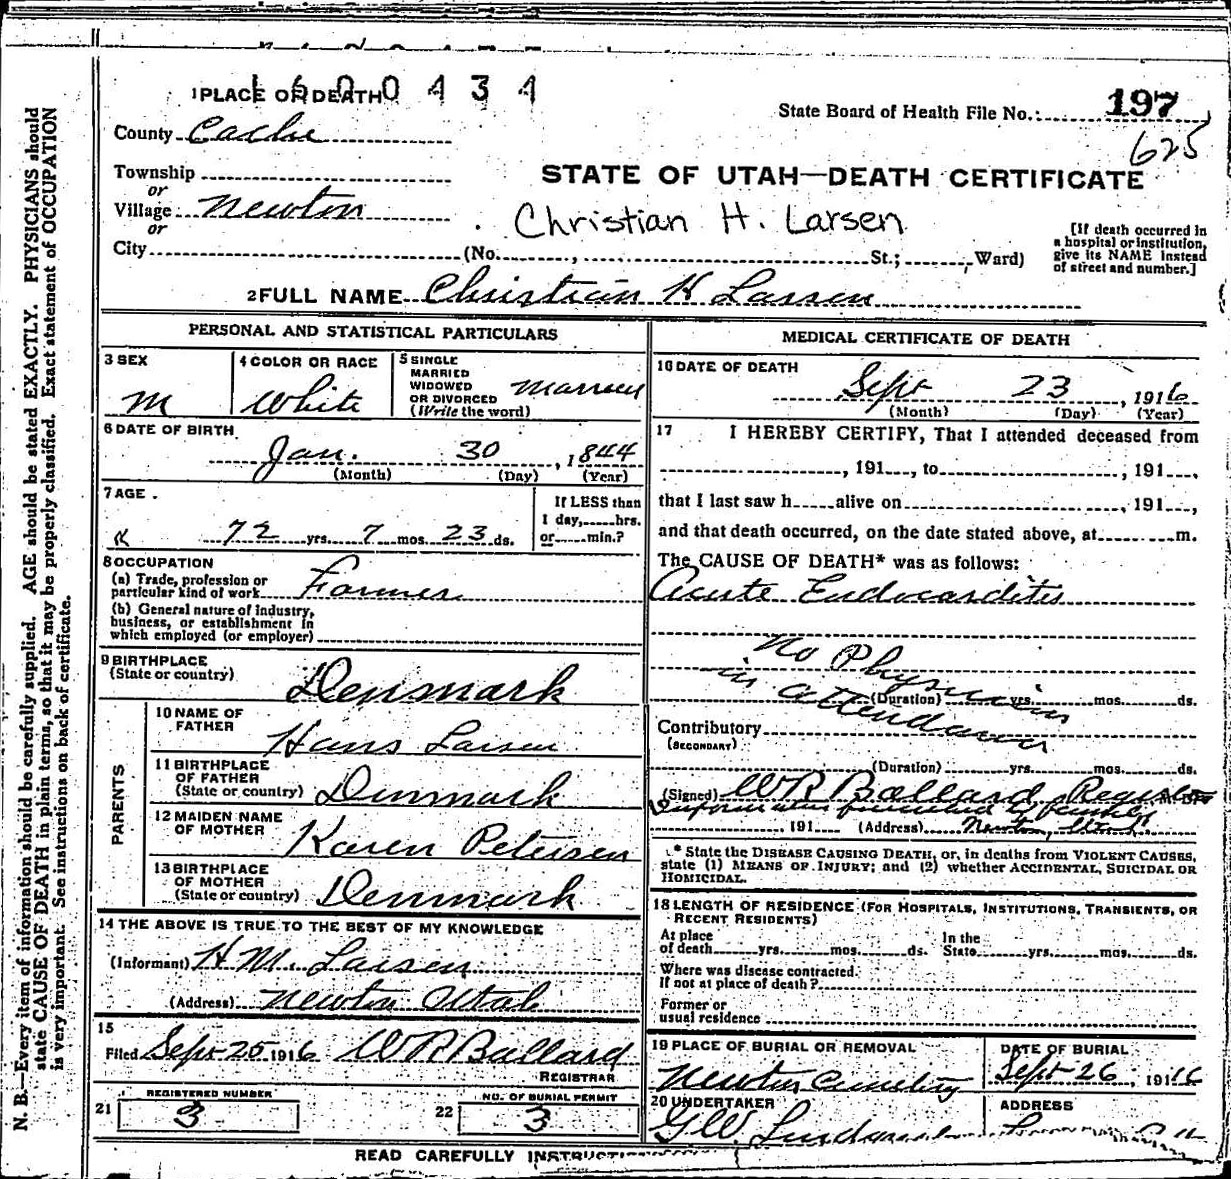 1 PLACE OF DEATH 1600434
State Board of Health File No. 197
625
County Cache
Township
or
Village Newton
or
City (No. , St.; Ward)
STATE OF UTAH—DEATH CERTIFICATE
Christian H. Larsen
[If death occurred in
a hospital or institution,
give its NAME instead
of street and number.]
2 FULL NAME Christian H Larsen
PERSONAL AND STATISTICAL PARTICULARS
3 SEX
M
4 COLOR OR RACE
White
5 SINGLE
MARRIED
WIDOWED
OR DIVORCED
(Write the word)
Married
6 DATE OF BIRTH
Jan. 30, 1844
(Month) (Day) (Year)
7 AGE
72 yrs. 7 mos. 23 ds.
If LESS than
1 day, hrs.
or min.?
8 OCCUPATION
(a) Trade, profession or
particular kind of work Farmer
(b) General nature of industry,
business, or establishment in
which employed (or employer)
9 BIRTHPLACE
(State or country) Denmark
PARENTS
10 NAME OF
FATHER Hans Larsen
11 BIRTHPLACE
OF FATHER
(State or country) Denmark
12 MAIDEN NAME
OF MOTHER Karen Petersen
13 BIRTHPLACE
OF MOTHER
(State or country) Denmark
14 THE ABOVE IS TRUE TO THE BEST OF MY KNOWLEDGE
(Informant) H M. Larsen
(Address) Newton Utah
15
Filed Sept 25 1916 W R Ballard
REGISTRAR
21 REGISTERED NUMBER
3
22 NO. OF BURIAL PERMIT
3
MEDICAL CERTIFICATE OF DEATH
16 DATE OF DEATH
Sept 23, 1916
(Month) (Day) (Year)
17 I HEREBY CERTIFY, That I attended deceased from
, 191 , to , 191 ,
that I last saw h alive on , 191 ,
and that death occurred, on the date stated above, at m.
The CAUSE OF DEATH* was as follows:
Acute Endocarditis
No Physician
in attendance
(Duration) yrs. mos. ds.
Contributory
(SECONDARY)
(Duration) yrs. mos. ds.
(Signed) W R Ballard, Registrar M. D.
Information furnished by family
, 191 (Address) Newton, Utah.
* State the DISEASE CAUSING DEATH, or, in deaths from VIOLENT CAUSES,
state (1) MEANS OF INJURY; and (2) whether ACCIDENTAL, SUICIDAL OR
HOMICIDAL.
18 LENGTH OF RESIDENCE (FOR HOSPITALS, INSTITUTIONS, TRANSIENTS, OR
RECENT RESIDENTS)
At place
of death yrs. mos. ds.
In the
State yrs. mos. ds.
Where was disease contracted.
If not at place of death?
Former or
usual residence
19 PLACE OF BURIAL OR REMOVAL
Newton Cemetery
DATE OF BURIAL
Sept 26, 1916
20 UNDERTAKER
G W.
ADDRESS
READ CAREFULLY
N. B.—Every item of information should be carefully supplied. AGE should be stated EXACTLY. PHYSICIANS should
state CAUSE OF DEATH in plain terms, so that it may be properly classified. Exact statement of OCCUPATION
is very important. See instructions on back of certificate.